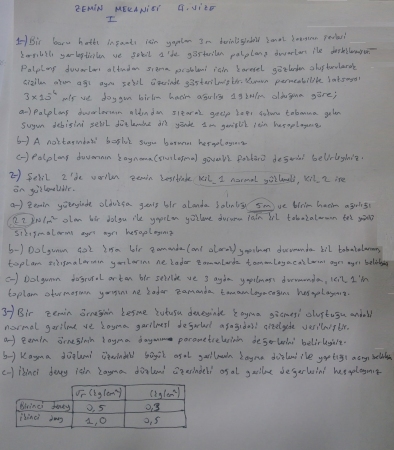 ZEMİN MEKANİĞİ II. VİZE
I
1-) Bir boru hattı inşaatı için yapılan 7m derinliğindeki kanal kazısının şevleri
karşılıklı yerleştirilen ve Şekil 1'de gösterilen palplanş duvarları ile desteklenmiştir.
Palplanş duvarları altından sızma problemi için karesel gözlerden oluşturularak
çizilen akım ağı aynı şekil üzerinde gösterilmiştir. Kumun permeabilite katsayısı
3x10 m/s ve doygun birim hacim ağırlığı 19 kN/m olduğuna göre;
a-) Palplanş duvarlarının altından sızarak geçip kazı tabanına gelen
suyun debisini şekil düzlemine dik yönde 1m genişlik için hesaplayınız.
b-) A noktasındaki boşluk suyu basıncını hesaplayınız.
c-) Palplanş duvarının kaynama güvenlik faktörü değerini belirleyiniz.
2-) Şekil 2'de verilen zemin kesitinde Kil 1 normal yüklenmiş, Kil 2 ise
ön yüklemelidir.
a-) Zemin yüzeyinde oldukça geniş bir alanda kalınlığı 5m ve birim hacim ağırlığı
22 kN/m³ olan bir dolgu ile yapılan yükleme durumu için kil tabakalarının tek yönlü
sıkışmalarını ayrı ayrı hesaplayınız.
b-) Dolgunun çok kısa bir zamanda (ani olarak) yapılması durumunda kil tabakalarının
toplam sıkışmalarının yarılarını ne kadar zamanlarda tamamlayacaklarını ayrı ayrı
c-) Dolgunun doğrusal artan bir şekilde ve 3 ayda yapılması durumunda, kil 1'in
toplam oturmasının yarısını ne kadar zamanda tamamlayacağını hesaplayınız.
3-) Bir zemin örneğinin kesme kutusu deneyinde kayma göçmesi oluştuğu andaki
normal gerilme ve kayma gerilmesi değerleri aşağıdaki çizelgede verilmiştir.
a-) Zemin örneğinin kayma dayanım parametrelerinin değerlerini belirleyiniz.
b-) Kayma düzlemi üzerindeki büyük asal gerilmenin kayma düzlemi ile yaptığı açıyı
c-) İkinci deney için kayma düzlemi üzerindeki asal gerilme değerlerini hesaplayınız.
σ (kg/cm²) (kg/cm²)
Birinci deney 0,5 0,3
İkinci deney 1,0 0,5